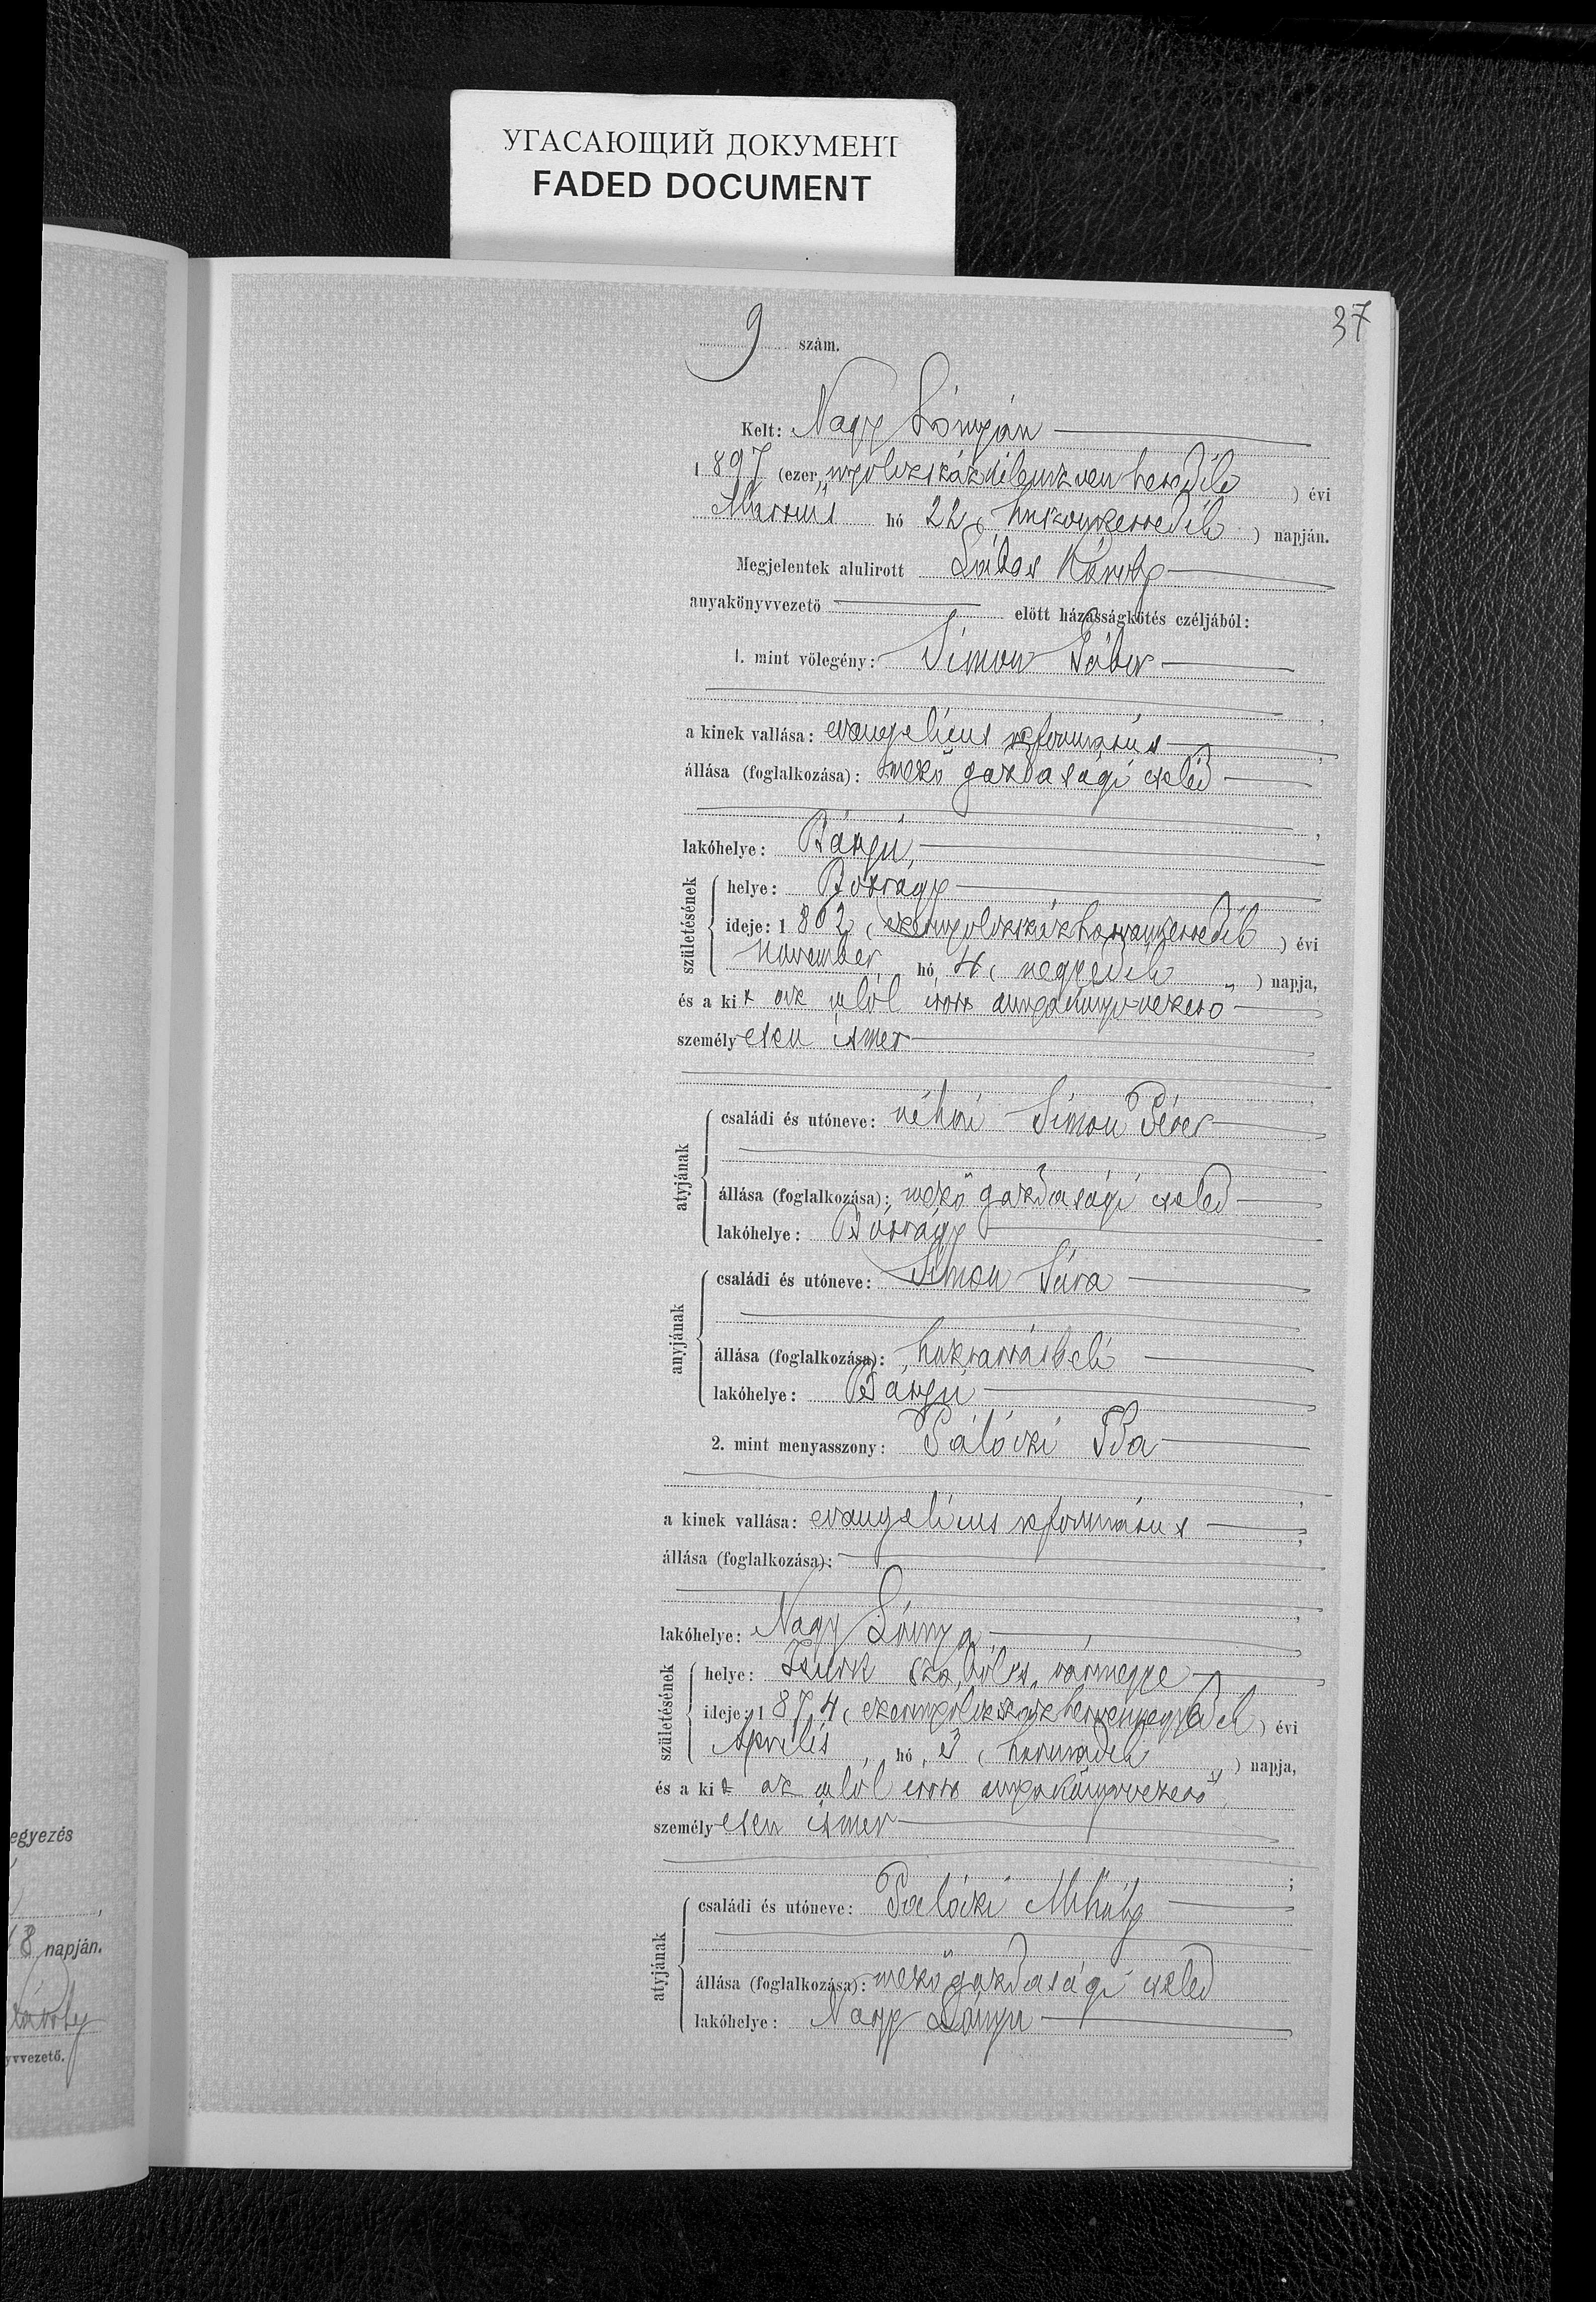 УГАСАЮЩИЙ ДОКУМЕНТ
FADED DOCUMENT
37
9 szám.
Kelt: Nagy Lónyán
1897 (ezernyolczszázkilenczvenhetedik) évi
Martius hó 22 (huszonkettedik) napján.
Megjelentek alulirott Károly
anyakönyvvezető előtt házasságkötés czéljából:
1. mint vőlegény: Simon Gábor
a kinek vallása: evangelicus református
állása (foglalkozása): mező gazdasági cseléd
lakóhelye: Bátyú,
születésének
helye: Bótrágy
ideje: 1862 (ezernyolczszázhatvankettedik) évi
november hó 4 (negyedik) napja,
és a kit az alól irott anyakönyvvezető
személyesen ismer
atyjának
családi és utóneve: néhai Simon Péter
állása (foglalkozása): mező gazdasági cseléd
lakóhelye: Bótrágy
anyjának
családi és utóneve: Simon Sára
állása (foglalkozása): háztartásbeli
lakóhelye: Bátyú
2. mint menyasszony: Pálóczi Ida
a kinek vallása: evangelicus református
állása (foglalkozása):
lakóhelye: Nagy Lónya,
születésének
helye: Eszeny Szabolcs vármegye
ideje: 1874 (ezernyolczszázhetvennegyedik) évi
Április hó 3 (harmadik) napja,
és a kit az alól irott anyakönyvvezető
személyesen ismer
atyjának
családi és utóneve: Palóczi Mihály
állása (foglalkozása): mezőgazdasági cseléd
lakóhelye: Nagy Lónya
egyezés
18 napján.
Károly
yvvezető.